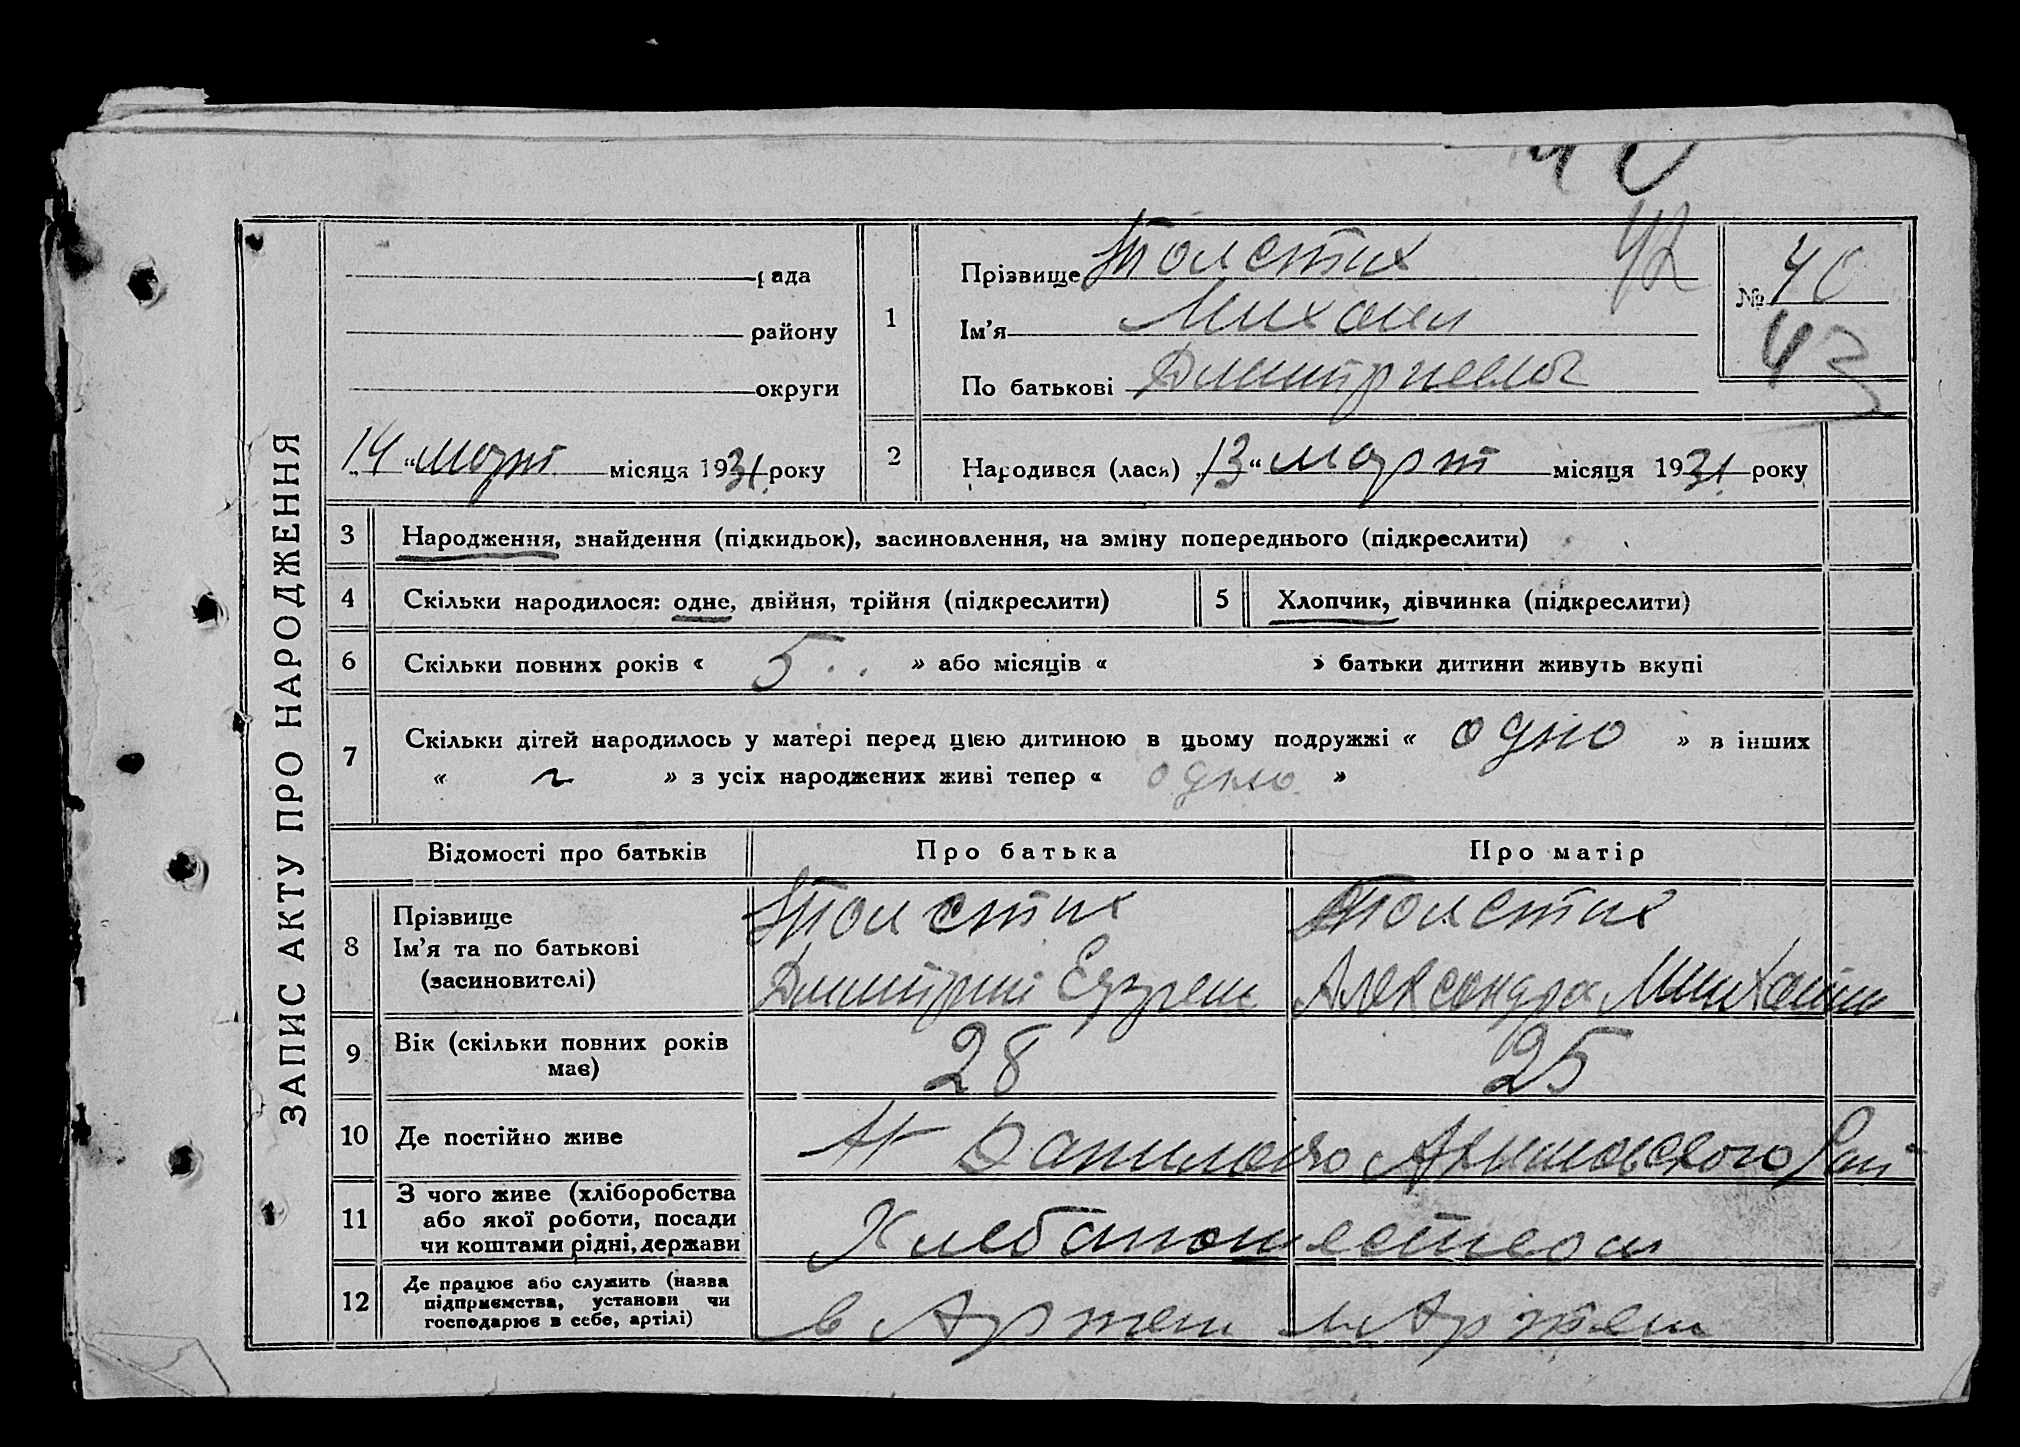 40
ЗАПИС АКТУ ПРО НАРОДЖЕННЯ
рада
району
округи
„14“ март місяця 1931 року
1
Прізвище Толстих 42
Ім’я Михаил
По батькові Дмитриевич
№ 40
43
2 Народився (лася) „13“ март місяця 1931 року
3 Народження, знайдення (підкидьок), засиновлення, на зміну попереднього (підкреслити)
4 Скільки народилося: одне, двійня, трійня (підкреслити)
5 Хлопчик, дівчинка (підкреслити)
6 Скільки повних років « 5 » або місяців « » батьки дитини живуть вкупі
7 Скільки дітей народилось у матері перед цією дитиною в цьому подружжі « одно » в інших
« » з усіх народжених живі тепер « одно »
Відомості про батьків Про батька Про матір
8 Прізвище
Ім’я та по батькові
(засиновителі)
Толстих
Дмитрий
Толстих
Александра Михайл
9 Вік (скільки повних років
має)
28 25
10 Де постійно живе Н Данилово Акимовского Рай
11 З чого живе (хліборобства
або якої роботи, посади
чи коштами рідні, держави
12 Де працює або служить (назва
підприємства, установи чи
господарює в себе, артілі)
в Артели в Артели